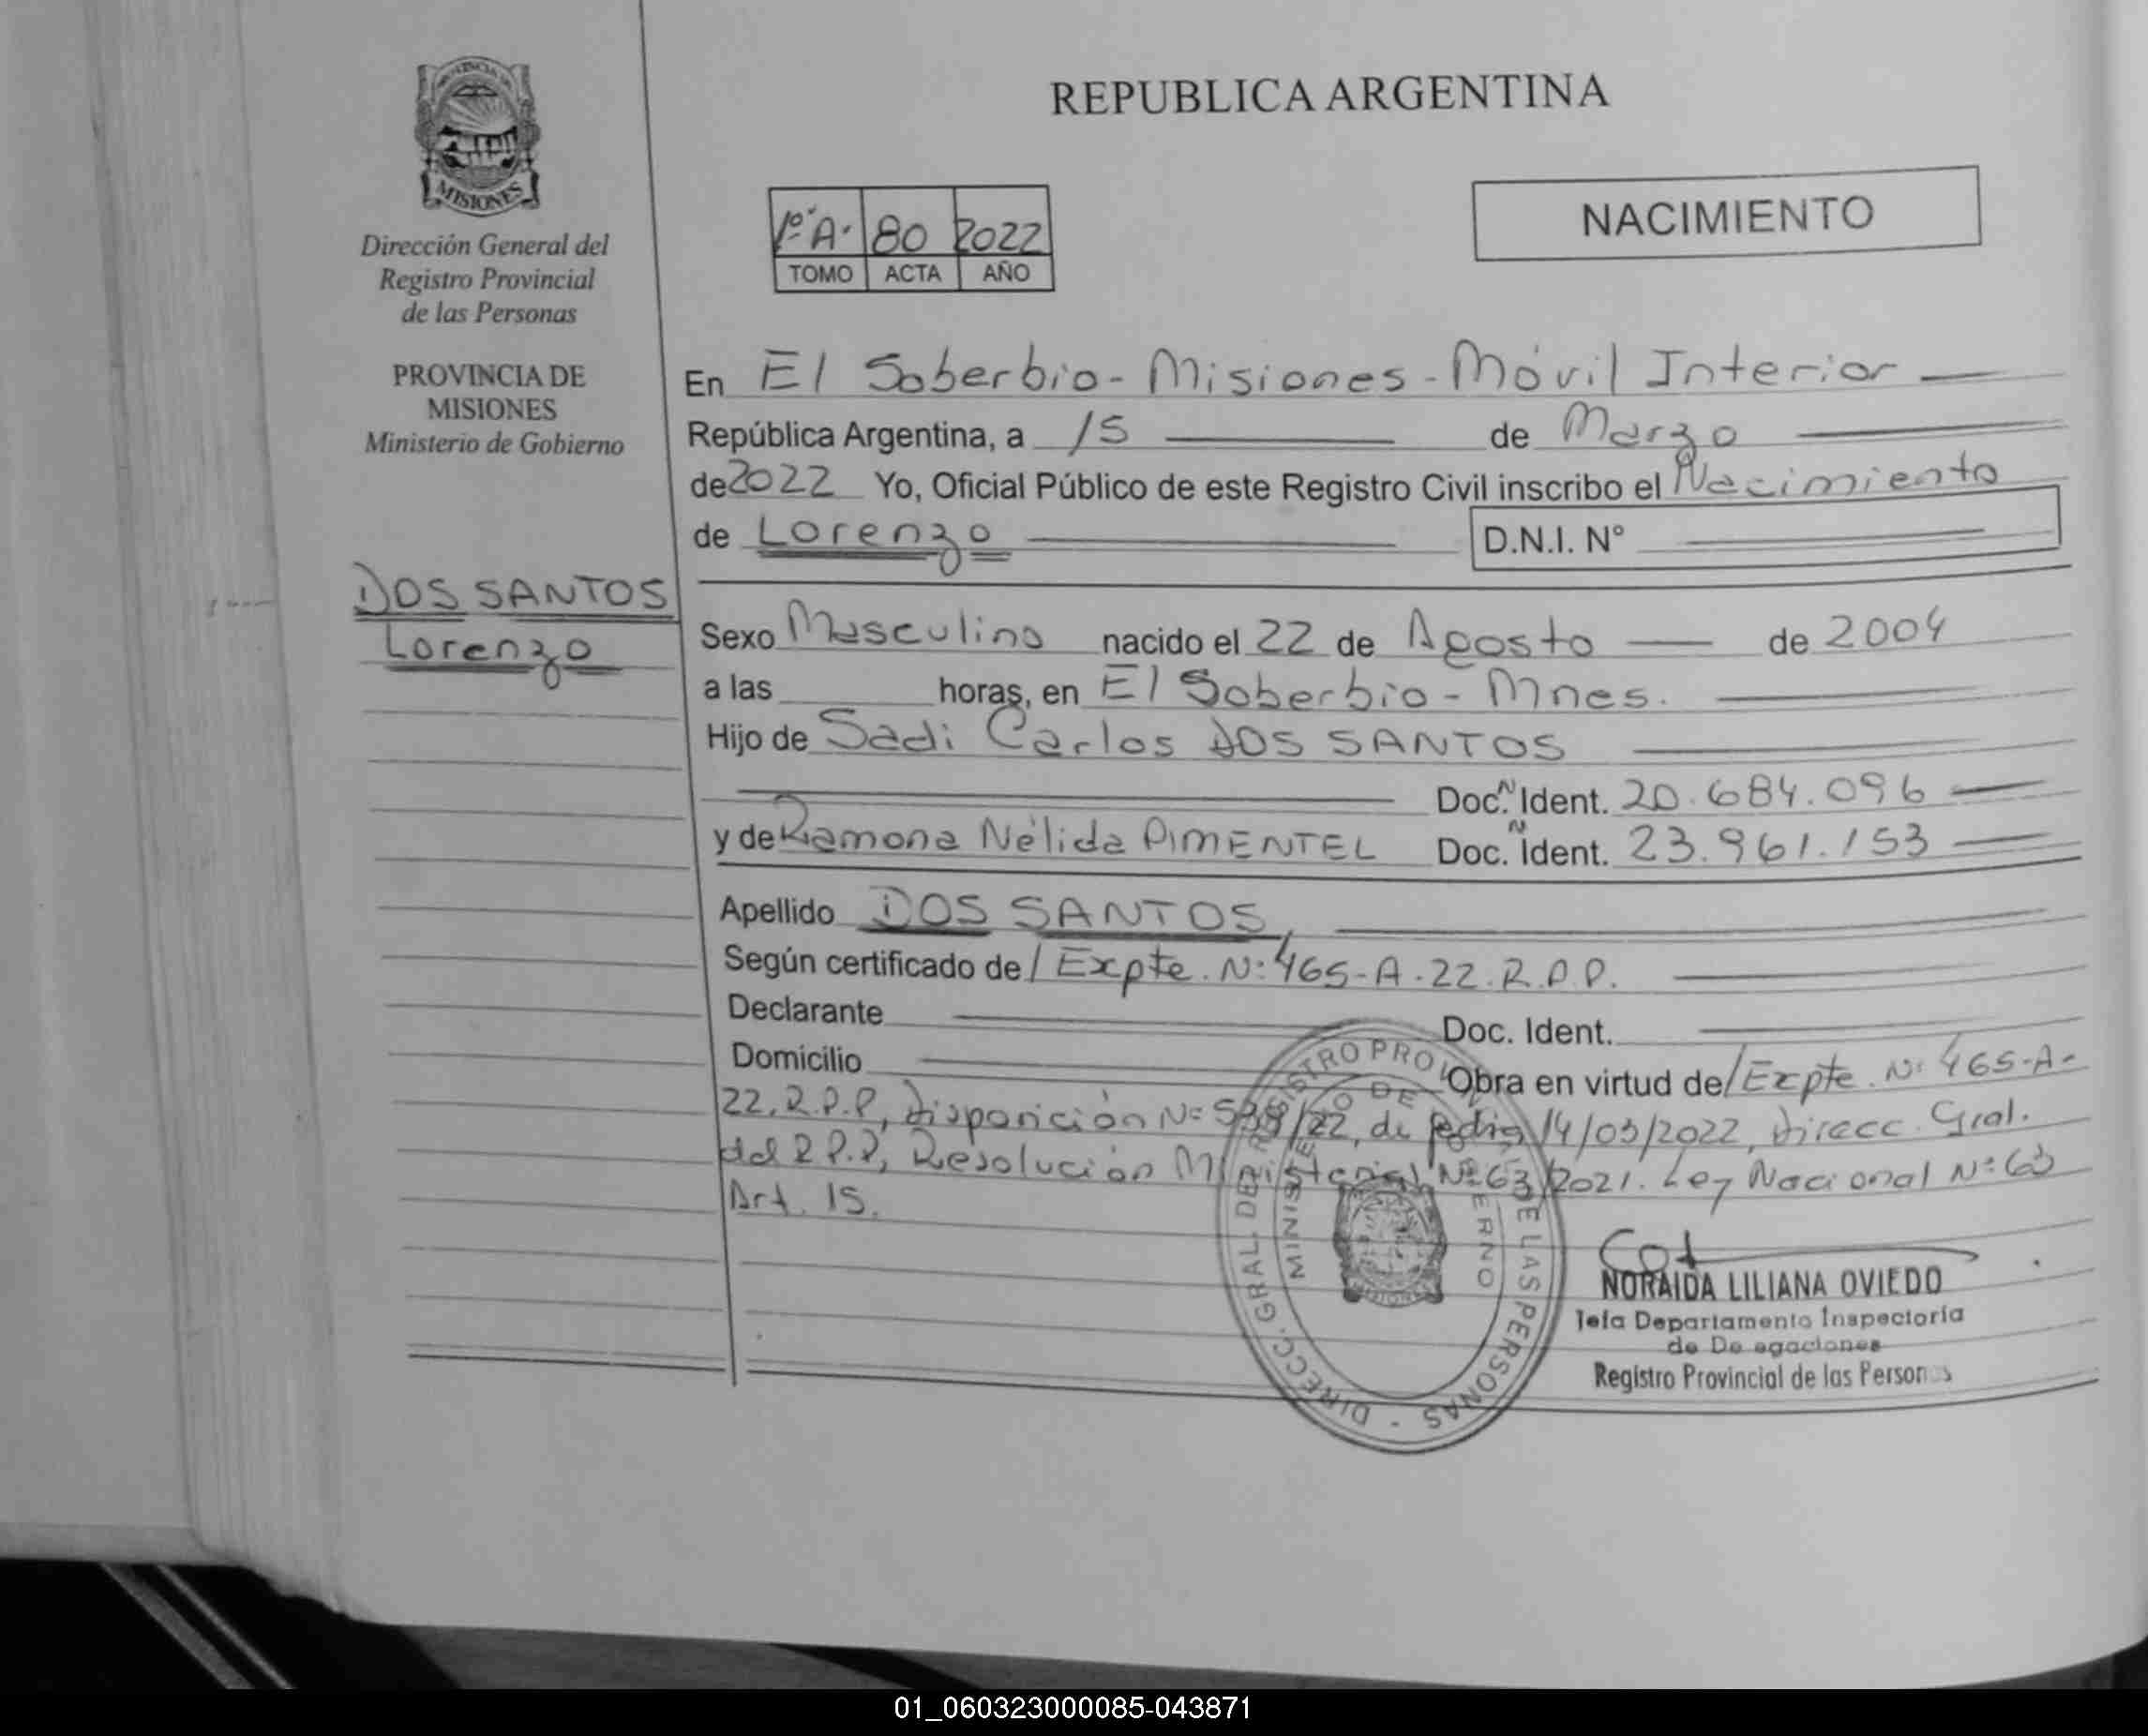 PROVINCIA DE
MISIONES
Dirección General del
Registro Provincial
de las Personas
PROVINCIA DE
MISIONES
Ministerio de Gobierno
DOS SANTOS
Lorenzo
REPUBLICA ARGENTINA
1º A. 80 2022
TOMO ACTA AÑO
NACIMIENTO
En El Soberbio - Misiones - Móvil Interior
República Argentina, a 15 de Marzo
de 2022 Yo, Oficial Público de este Registro Civil inscribo el Nacimiento
de Lorenzo D.N.I. N°
Sexo Masculino nacido el 22 de Agosto de 2004
a las horas, en El Soberbio - Mnes.
Hijo de Sadi Carlos DOS SANTOS
Doc. N Ident. 20.684.096
y de Ramona Nélida PIMENTEL Doc. N Ident. 23.961.153
Apellido DOS SANTOS
Según certificado de / Expte. N: 465-A-22.R.P.P.
Declarante Doc. Ident.
Domicilio Obra en virtud de / Expte. N: 465-A-
22.R.P.P, Disposición N= /22, de fecha 14/03/2022, Direcc. Gral.
del R.P.P, Resolución Ministerial N= 63/2021. Ley Nacional N=
Art. 15.
DIRECC. GRAL. DEL REGISTRO PROVINCIAL DE LAS PERSONAS
MINISTERIO DE GOBIERNO
NORAIDA LILIANA OVIEDO
Jefa Departamento Inspectoría
de De egaciones
Registro Provincial de las Personas
01_060323000085-043871